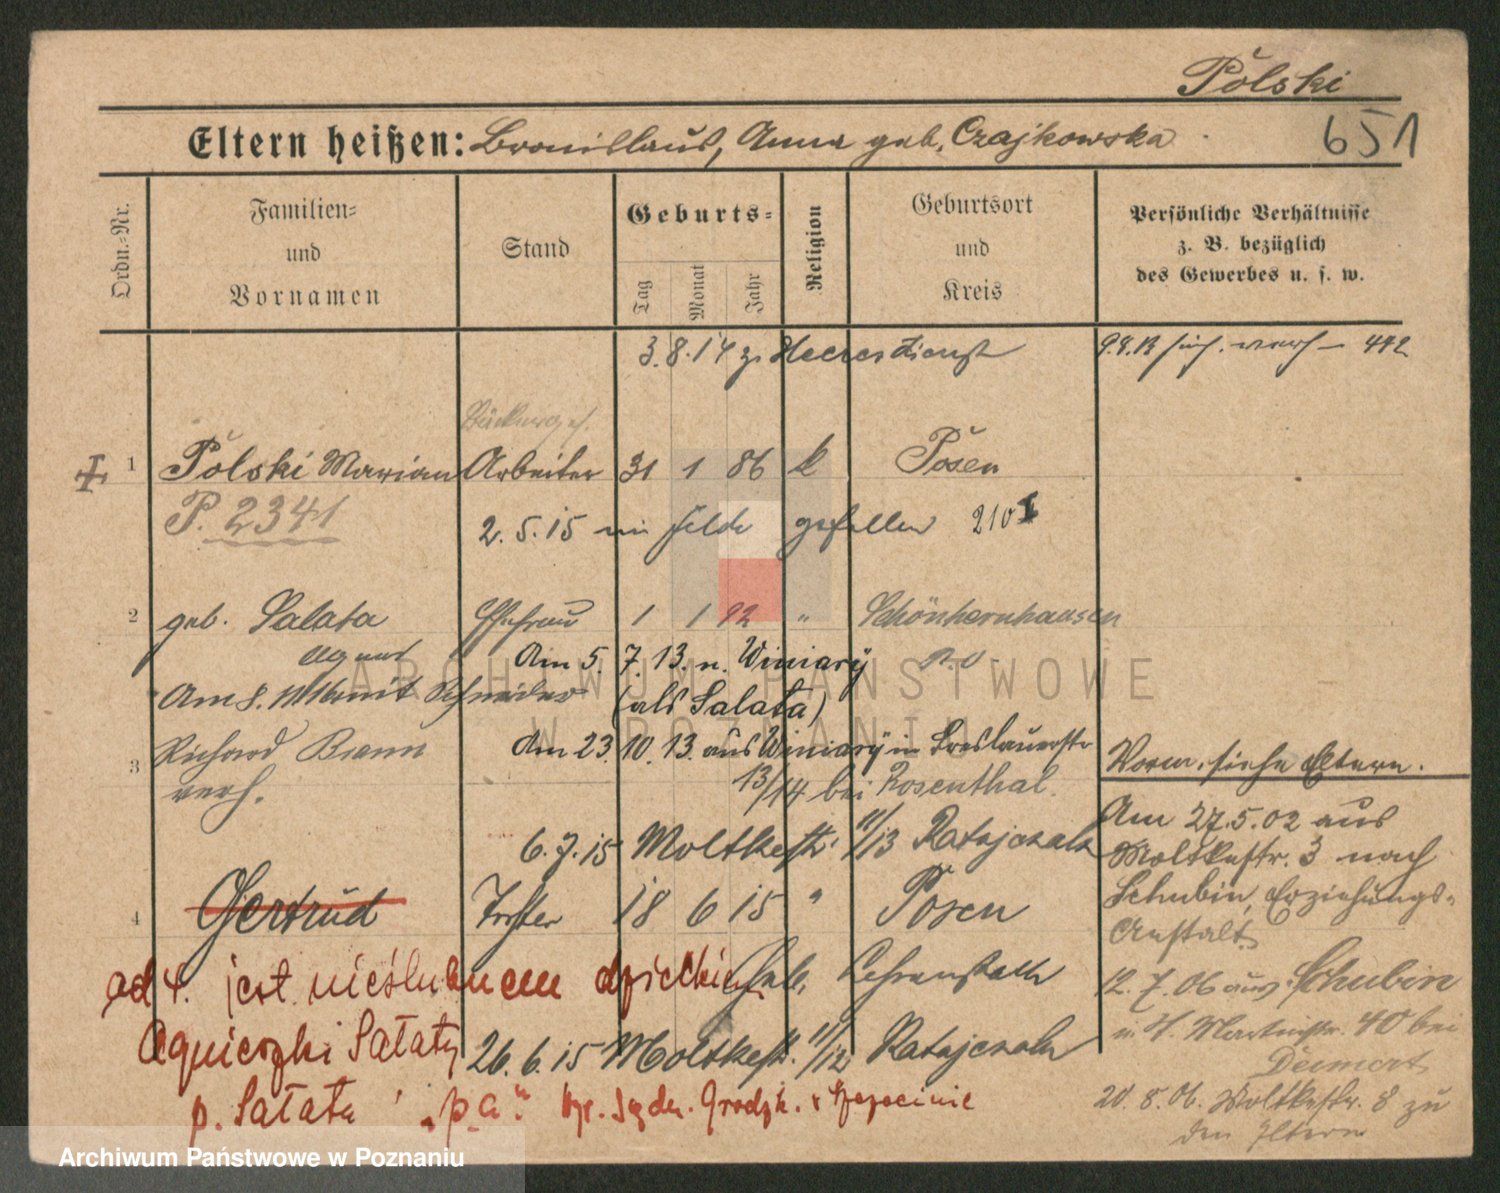 Polski
651
Eltern heißen: Bronislaus, Anna geb. Czajkowska
Ordn.-Nr.
Familien-
und
Vornamen
Stand
Geburts-
Tag
Monat
Jahr
Religion
Geburtsort
und
Kreis
Persönliche Verhältnisse
z. B. bezüglich
des Gewerbes u. s. w.
3.8.14 z. Heeresdienst
9.8.13 442
1 Polski Marian Arbeiter 31 1 86 k Posen
P. 2341
2.5.15 im Felde gefallen 210
2 geb. Salata Ehefrau 1 1 92 " Schönhernhausen
Agnes
Am 5. 7. 13. n. Winiary
Am 8. mit Schneider
(als Salata)
Richard Braun
verh.
Am 23. 10. 13. aus Winiary in Breslauerstr
13/14 bei Rosenthal.
3
Vorm. siehe Eltern.
6.7.15 Moltkestr. 11/13 Ratajczak
4 Gertrud Tochter 18 6 15 " Posen
Geb. Lehranstalt
26.6.15 Moltkestr. 11/12 Ratajczak
Am 27.5.02 aus
Moltkestr. 3 nach
Schubin, Erziehungs-
Anstalt.
12.7.06 aus Schubin
n. H. Martinstr. 40 bei
20.8.06. Moltkestr. 8 zu
den Eltern
ad 4. jest nieślubnem dzieckiem
Agnieszki Sałaty
p. Sałata "pa" Grodzk. w Szczecinie
ARCHIWUM PAŃSTWOWE
W POZNANIU
Archiwum Państwowe w Poznaniu